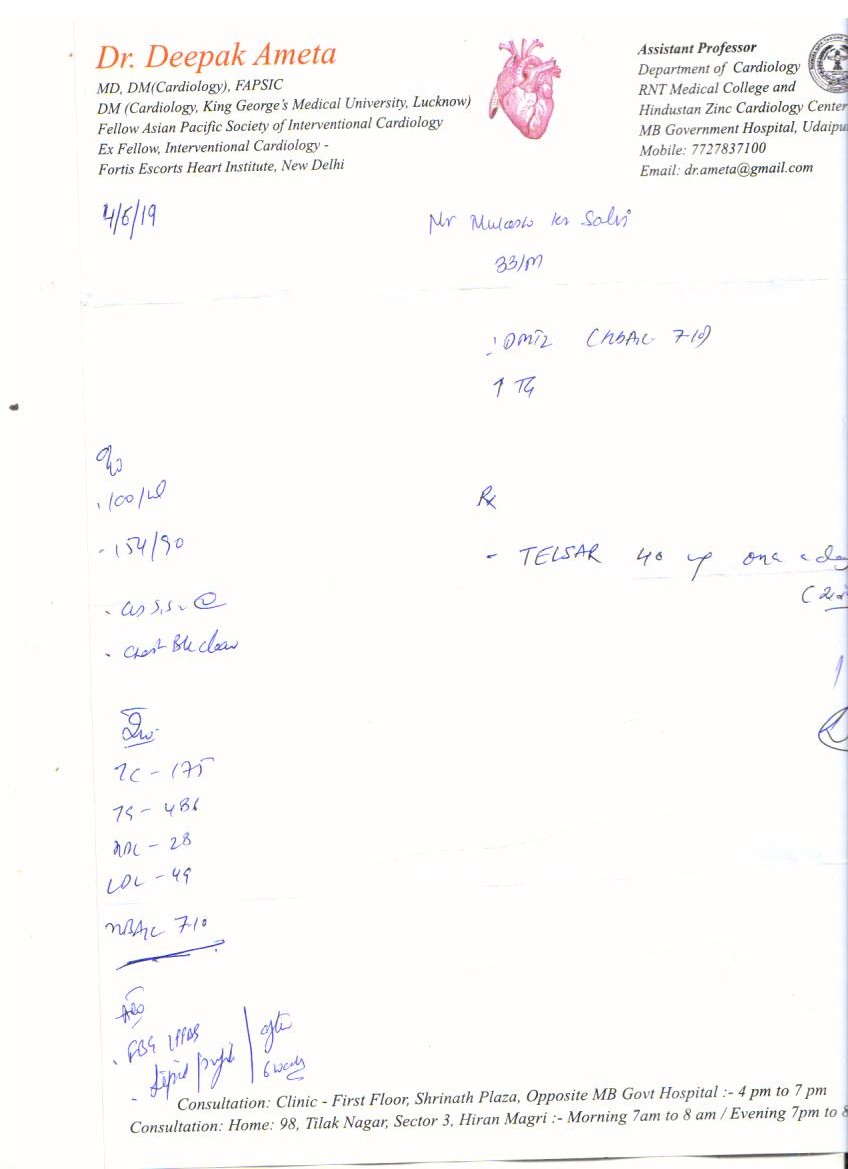 Dr. Deepak Ameta
MD, DM(Cardiology), FAPSIC
DM (Cardiology, King George's Medical University, Lucknow)
Fellow Asian Pacific Society of Interventional Cardiology
Ex Fellow, Interventional Cardiology -
Fortis Escorts Heart Institute, New Delhi
Assistant Professor
Department of Cardiology
RNT Medical College and
Hindustan Zinc Cardiology Center
MB Government Hospital, Udaipu
Mobile: 7727837100
Email: dr.ameta@gmail.com
4/6/19
Mr Mukesh kr Salvi
33/M
(HbA1c 7.0)
↑ TG
- 154/90
- Chest B/L clear
TC - 175
TG - 486
HDL - 28
LDL - 49
HBA1c 7.0
Rx
- TELSAR 40 one a day
FBS / PPBS
- lipid profile
after
6 weeks
Consultation: Clinic - First Floor, Shrinath Plaza, Opposite MB Govt Hospital :- 4 pm to 7 pm
Consultation: Home: 98, Tilak Nagar, Sector 3, Hiran Magri :- Morning 7am to 8 am / Evening 7pm to 8